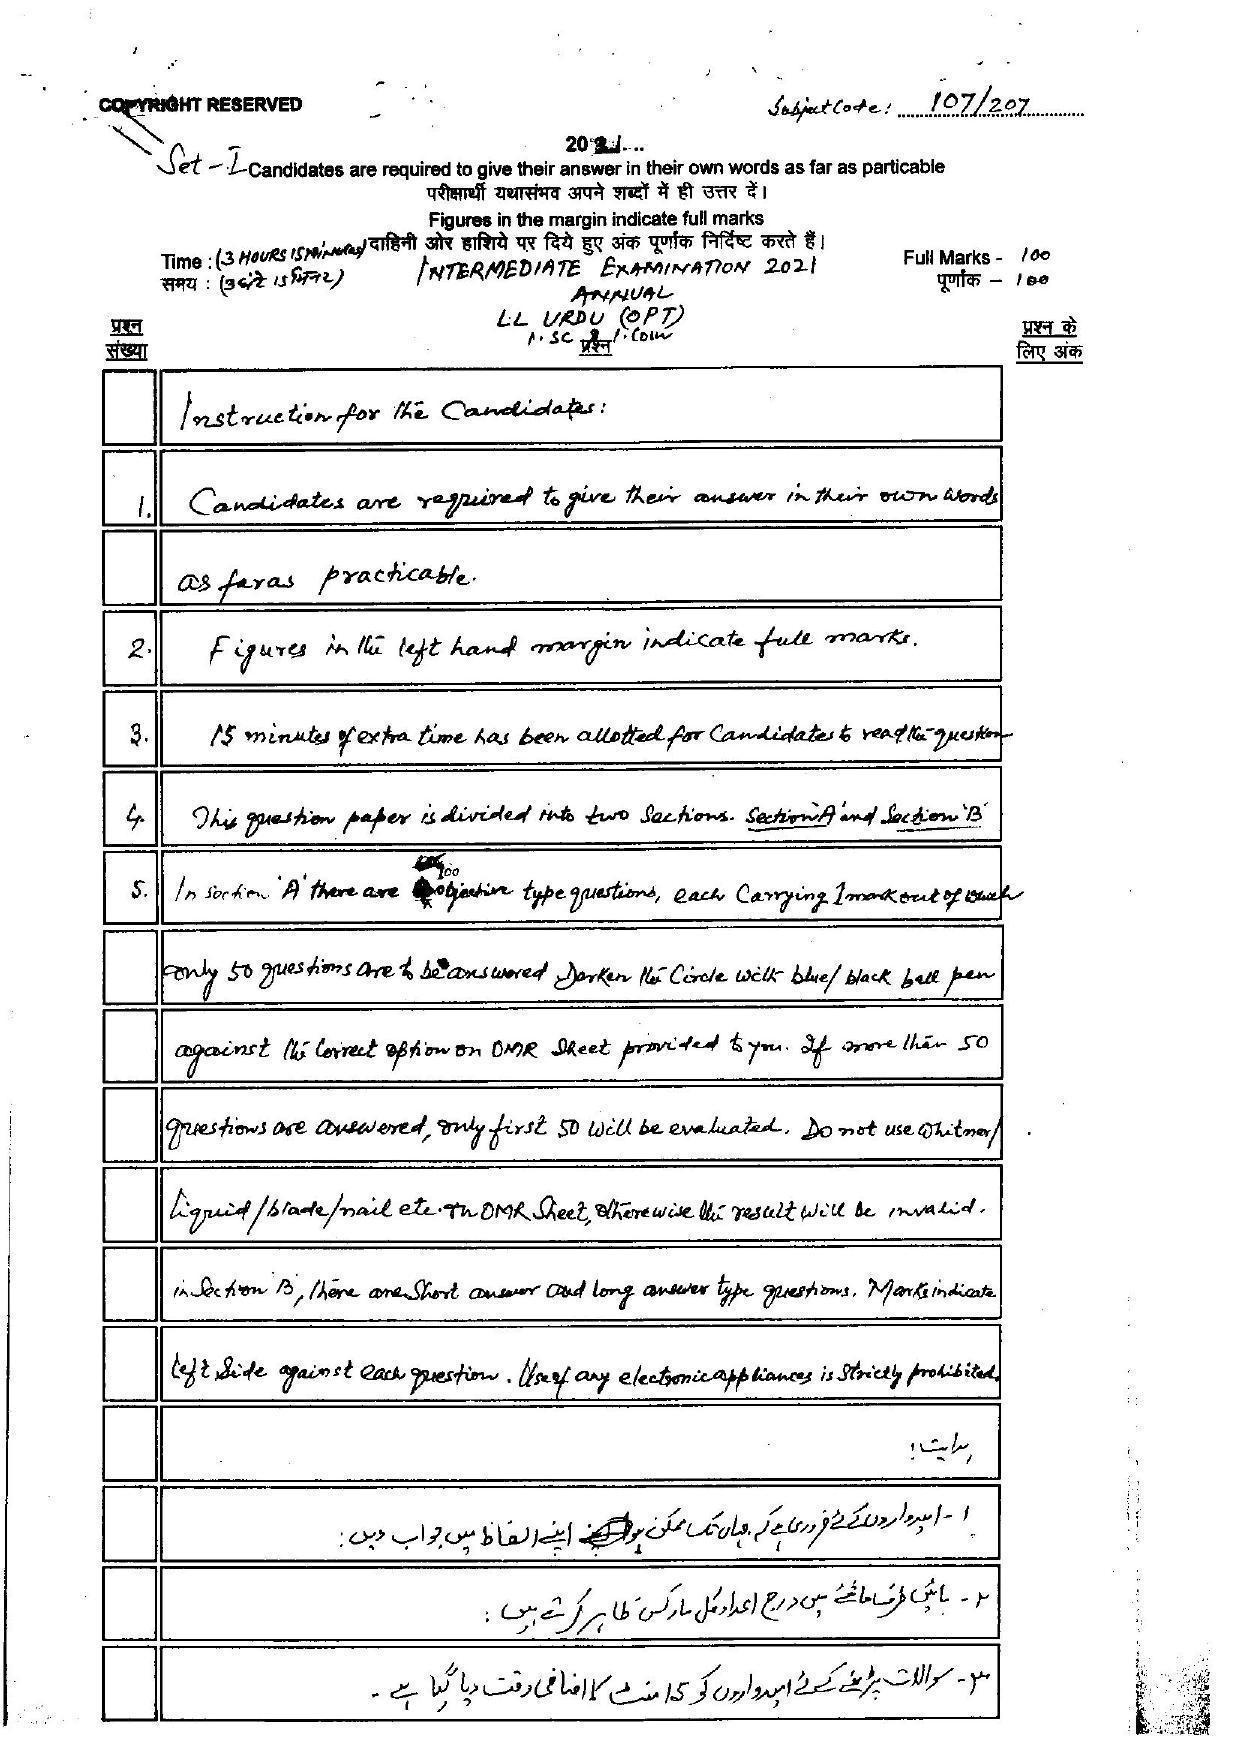 COPYRIGHT RESERVED
Subject Code: 107/207
2021....
Set-I Candidates are required to give their answer in their own words as far as particable
परीक्षार्थी यथासंभव अपने शब्दों में ही उत्तर दें।
Figures in the margin indicate full marks
दाहिनी ओर हाशिये पर दिये हुए अंक पूर्णांक निर्दिष्ट करते हैं।
Time : (3 HOURS 15 Minutes)
Full Marks - 100
समय : (3 घंटे 15 मिनट)
INTERMEDIATE EXAMINATION 2021
पूर्णांक – 100
ANNUAL
LL URDU (OPT)
I.SC & I.Com
प्रश्न संख्या
प्रश्न
प्रश्न के लिए अंक
Instruction for the Candidates:
1. Candidates are required to give their answer in their own words
as far as practicable.
2. Figures in the left hand margin indicate full marks.
3. 15 minutes of extra time has been allotted for Candidates to read the question
4. This question paper is divided into two Sections. Section 'A' and Section 'B'
5. In section 'A' there are 100 objective type questions, each Carrying 1 mark out of which
only 50 questions are to be answered Darken the Circle with blue/black ball pen
against the Correct option on OMR Sheet provided to you. If more than 50
questions are answered, only first 50 will be evaluated. Do not use Whitner/
liquid/blade/nail etc. on OMR Sheet, otherewise the result will be invalid.
in Section 'B', there are Short answer and long answer type questions. Marks indicate
left side against each question. Use of any electronic appliances is Strictly prohibited.
ہدایت:
۱- امیدواروں کے لئے ضروری ہے کہ جہاں تک ممکن ہو اپنے الفاظ میں جواب دیں:
۲- بائیں طرف حاشئے میں درج اعداد کل مارکس ظاہر کرتے ہیں:
۳- سوالات پڑھنے کے لئے امیدواروں کو ۱۵ منٹ کا اضافی وقت دیا گیا ہے -